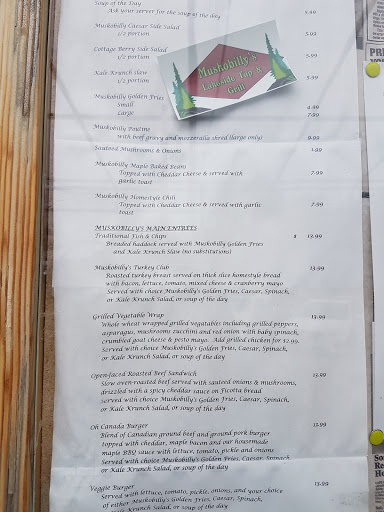 Soup of the Day
Ask your server for the soup of the day 5.99
Muskobilly Caesar Side Salad
1/2 portion 5.99
Cottage Berry Side Salad
1/2 portion 5.99
Kale Krunch slaw
1/2 portion 5.99
Muskobilly Golden Fries
Small 4.99
Large 7.99
Muskobilly Poutine
with beef gravy and mozzerella shred (large only) 9.99
Sauteed Mushrooms & Onions 1.99
Muskobilly Maple Baked Beans
Topped with Cheddar Cheese & served with 7.99
garlic toast
Muskobilly Homestyle Chili
Topped with Cheddar Cheese & served with garlic 7.99
toast
Muskobilly's
Lakeside Tap &
Grill
MUSKOBILLY'S MAIN ENTREES
Traditional Fish & Chips $ 13.99
Breaded haddock served with Muskobilly Golden Fries
and Kale Krunch Slaw (no substitutions)
Muskobilly's Turkey Club 13.99
Roasted turkey breast served on thick slice homestyle bread
with bacon, lettuce, tomato, mixed cheese & cranberry mayo
Served with choice Muskobilly's Golden Fries, Caesar, Spinach,
or Kale Krunch Salad, or soup of the day
Grilled Vegetable Wrap 13.99
Whole wheat wrapped grilled vegetables including grilled peppers,
asparagus, mushrooms zucchini and red onion with baby spinach,
crumbled goat cheese & pesto mayo. Add grilled chicken for $2.99.
Served with choice Muskobilly's Golden Fries, Caesar, Spinach,
or Kale Krunch Salad, or soup of the day
Open-faced Roasted Beef Sandwich 13.99
Slow oven-roasted beef served with sauteed onions & mushrooms,
drizzled with a spicy cheddar sauce on Ficotta bread
served with choice Muskobilly's Golden Fries, Caesar, Spinach,
or Kale Krunch Salad, or soup of the day
Oh Canada Burger 13.99
Blend of Canadian ground beef and ground pork burger
topped with cheddar, maple bacon and our housemade
maple BBQ sauce with lettuce, tomato, pickle and onions
Served with choice Muskobilly's Golden Fries, Caesar, Spinach,
or Kale Krunch Salad, or soup of the day
Veggie Burger 13.99
Served with lettuce, tomato, pickle, onions, and your choice
of either Muskobilly's Golden Fries, Caesar, Spinach,
or Kale Krunch Salad, or soup of the day